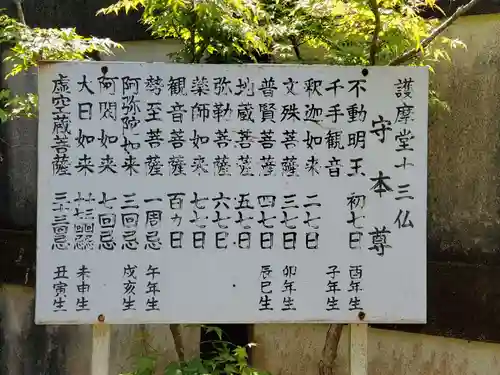 護摩堂十三仏
守本尊
不動明王 初七日 酉年生
千手観音 子年生
釈迦如来 二七日
文殊菩薩 三七日 卯年生
普賢菩薩 四七日 辰巳生
地蔵菩薩 五七日
弥勒菩薩 六七日
薬師如来 七七日
観音菩薩 百カ日
勢至菩薩 一周忌 午年生
阿弥陀如来 三回忌 戌亥生
阿閦如来 七回忌
大日如来 未申生
虚空蔵菩薩 三十三回忌 丑寅生